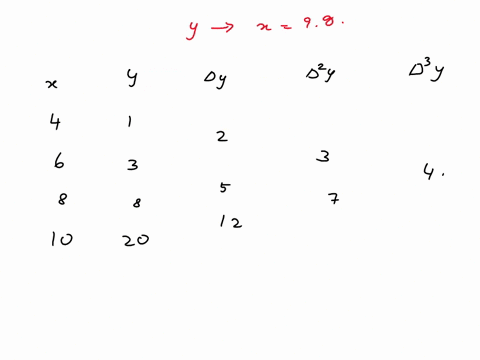 y → x = 9.8.
x y Δy Δ²y Δ³y
4 1
2
6 3 3
4.
8 8 5 7
12
10 20